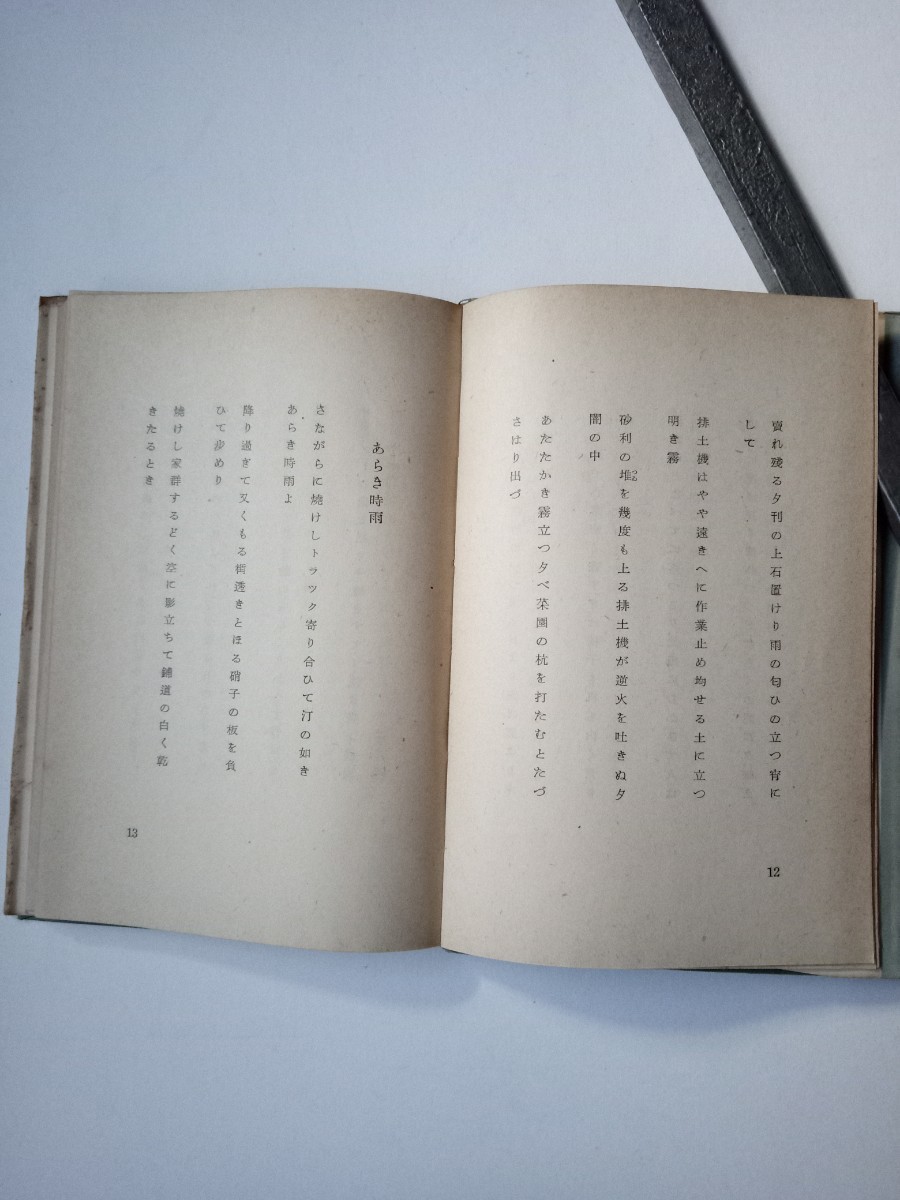 賣れ残る夕刊の上石置けり雨の匂ひの立つ宵に
して
排土機はやや遠きへに作業止め均せる土に立つ
明き霧
砂利の堆を幾度も上る排土機が逆火を吐きぬ夕
闇の中
あたたかき霧立つ夕べ菜園の杭を打たむとたづ
さはり出づ
12
あらき時雨
さながらに焼けしトラツク寄り合ひて汀の如き
あらき時雨よ
降り過ぎて又くもる街透きとほる硝子の板を負
ひて歩めり
焼けし家群するどく空に影立ちて鋪道の白く乾
きたるとき
13